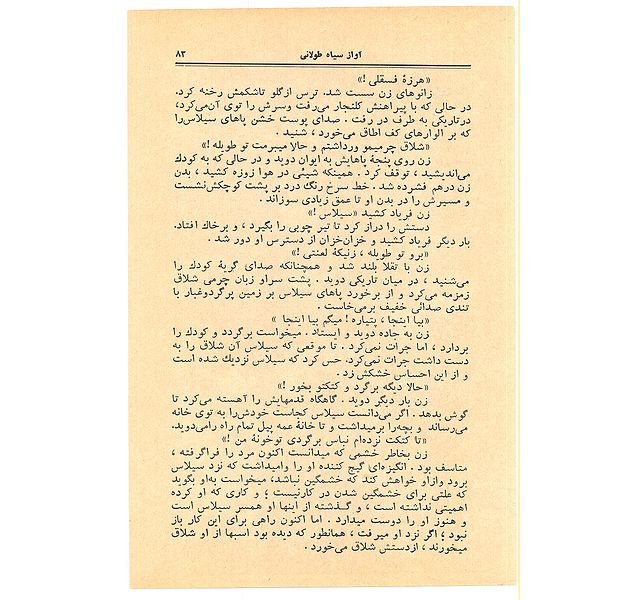 آواز سیاه طولانی ۸۳
«هرزهٔ فسقلی!»
زانوهای زن سست شد. ترس ازگلو تاشکمش رخنه کرد.
در حالی که با پیراهنش کلنجار می‌رفت وسرش را توی آن‌می‌کرد،
درتاریکی به طرف در رفت . صدای پوست خشن پاهای سیلاس‌را
که بر الوارهای کف اطاق می‌خورد ، شنید .
«شلاق چرمیمو ورداشتم و حالا میبرمت تو طویله!»
زن روی پنجهٔ پاهایش به ایوان دوید و در حالی که به کودك
می‌اندیشید ، توقف کرد . همینکه شیئی در هوا زوزه کشید ، بدن
زن درهم فشرده شد . خط سرخ رنگ درد بر پشت کوچکش‌نشست
و مسیرش را در بدن او تا عمق زیادی سوزاند .
زن فریاد کشید «سیلاس!»
دستش را دراز کرد تا تیر چوبی را بگیرد ، و برخاك افتاد.
بار دیگر فریاد کشید و خزان‌خزان از دسترس او دور شد .
«برو تو طویله ، زنیکهٔ لعنتی!»
زن با تقلا بلند شد و همچنانکه صدای گریهٔ کودك را
می‌شنید ، در میان تاریکی دوید . پشت سراو زبان چرمی شلاق
زمزمه می‌کرد و از برخورد پاهای سیلاس بر زمین پرگردوغبار با
تندی صدائی خفیف برمی‌خاست .
«بیا اینجا ، پتیاره! میگم بیا اینجا »
زن به جاده دوید و ایستاد . میخواست برگردد و کودك را
بردارد ، اما جرات نمی‌کرد . تا موقعی که سیلاس آن شلاق را به
دست داشت جرات نمی‌کرد. حس کرد که سیلاس نزدیك شده است
و از این احساس خشکش زد .
«حالا دیگه برگرد و کتکتو بخور!»
زن بار دیگر دوید . گاهگاه قدمهایش را آهسته می‌کرد تا
گوش بدهد . اگر می‌دانست سیلاس کجاست خودش‌را به توی خانه
می‌رساند و بچه‌را برمیداشت و تا خانهٔ عمه پیل تمام راه رامی‌دوید.
«تا کتکت نزده‌ام نباس برگردی توخونهٔ من!»
زن بخاطر خشمی که میدانست اکنون مرد را فراگرفته ،
متاسف بود . انگیزه‌ای گیج کننده او را وامیداشت که نزد سیلاس
برود وازاو خواهش کند که خشمگین نباشد، میخواست به‌او بگوید
که علتی برای خشمگین شدن در کارنیست ؛ و کاری که او کرده
اهمیتی نداشته است ، و گذشته از اینها او همسر سیلاس است
و هنوز او را دوست میدارد . اما اکنون راهی برای این کار باز
نبود ؛ اگر نزد او میرفت ، همانطور که دیده بود اسبها از او شلاق
میخورند ، ازدستش شلاق می‌خورد .